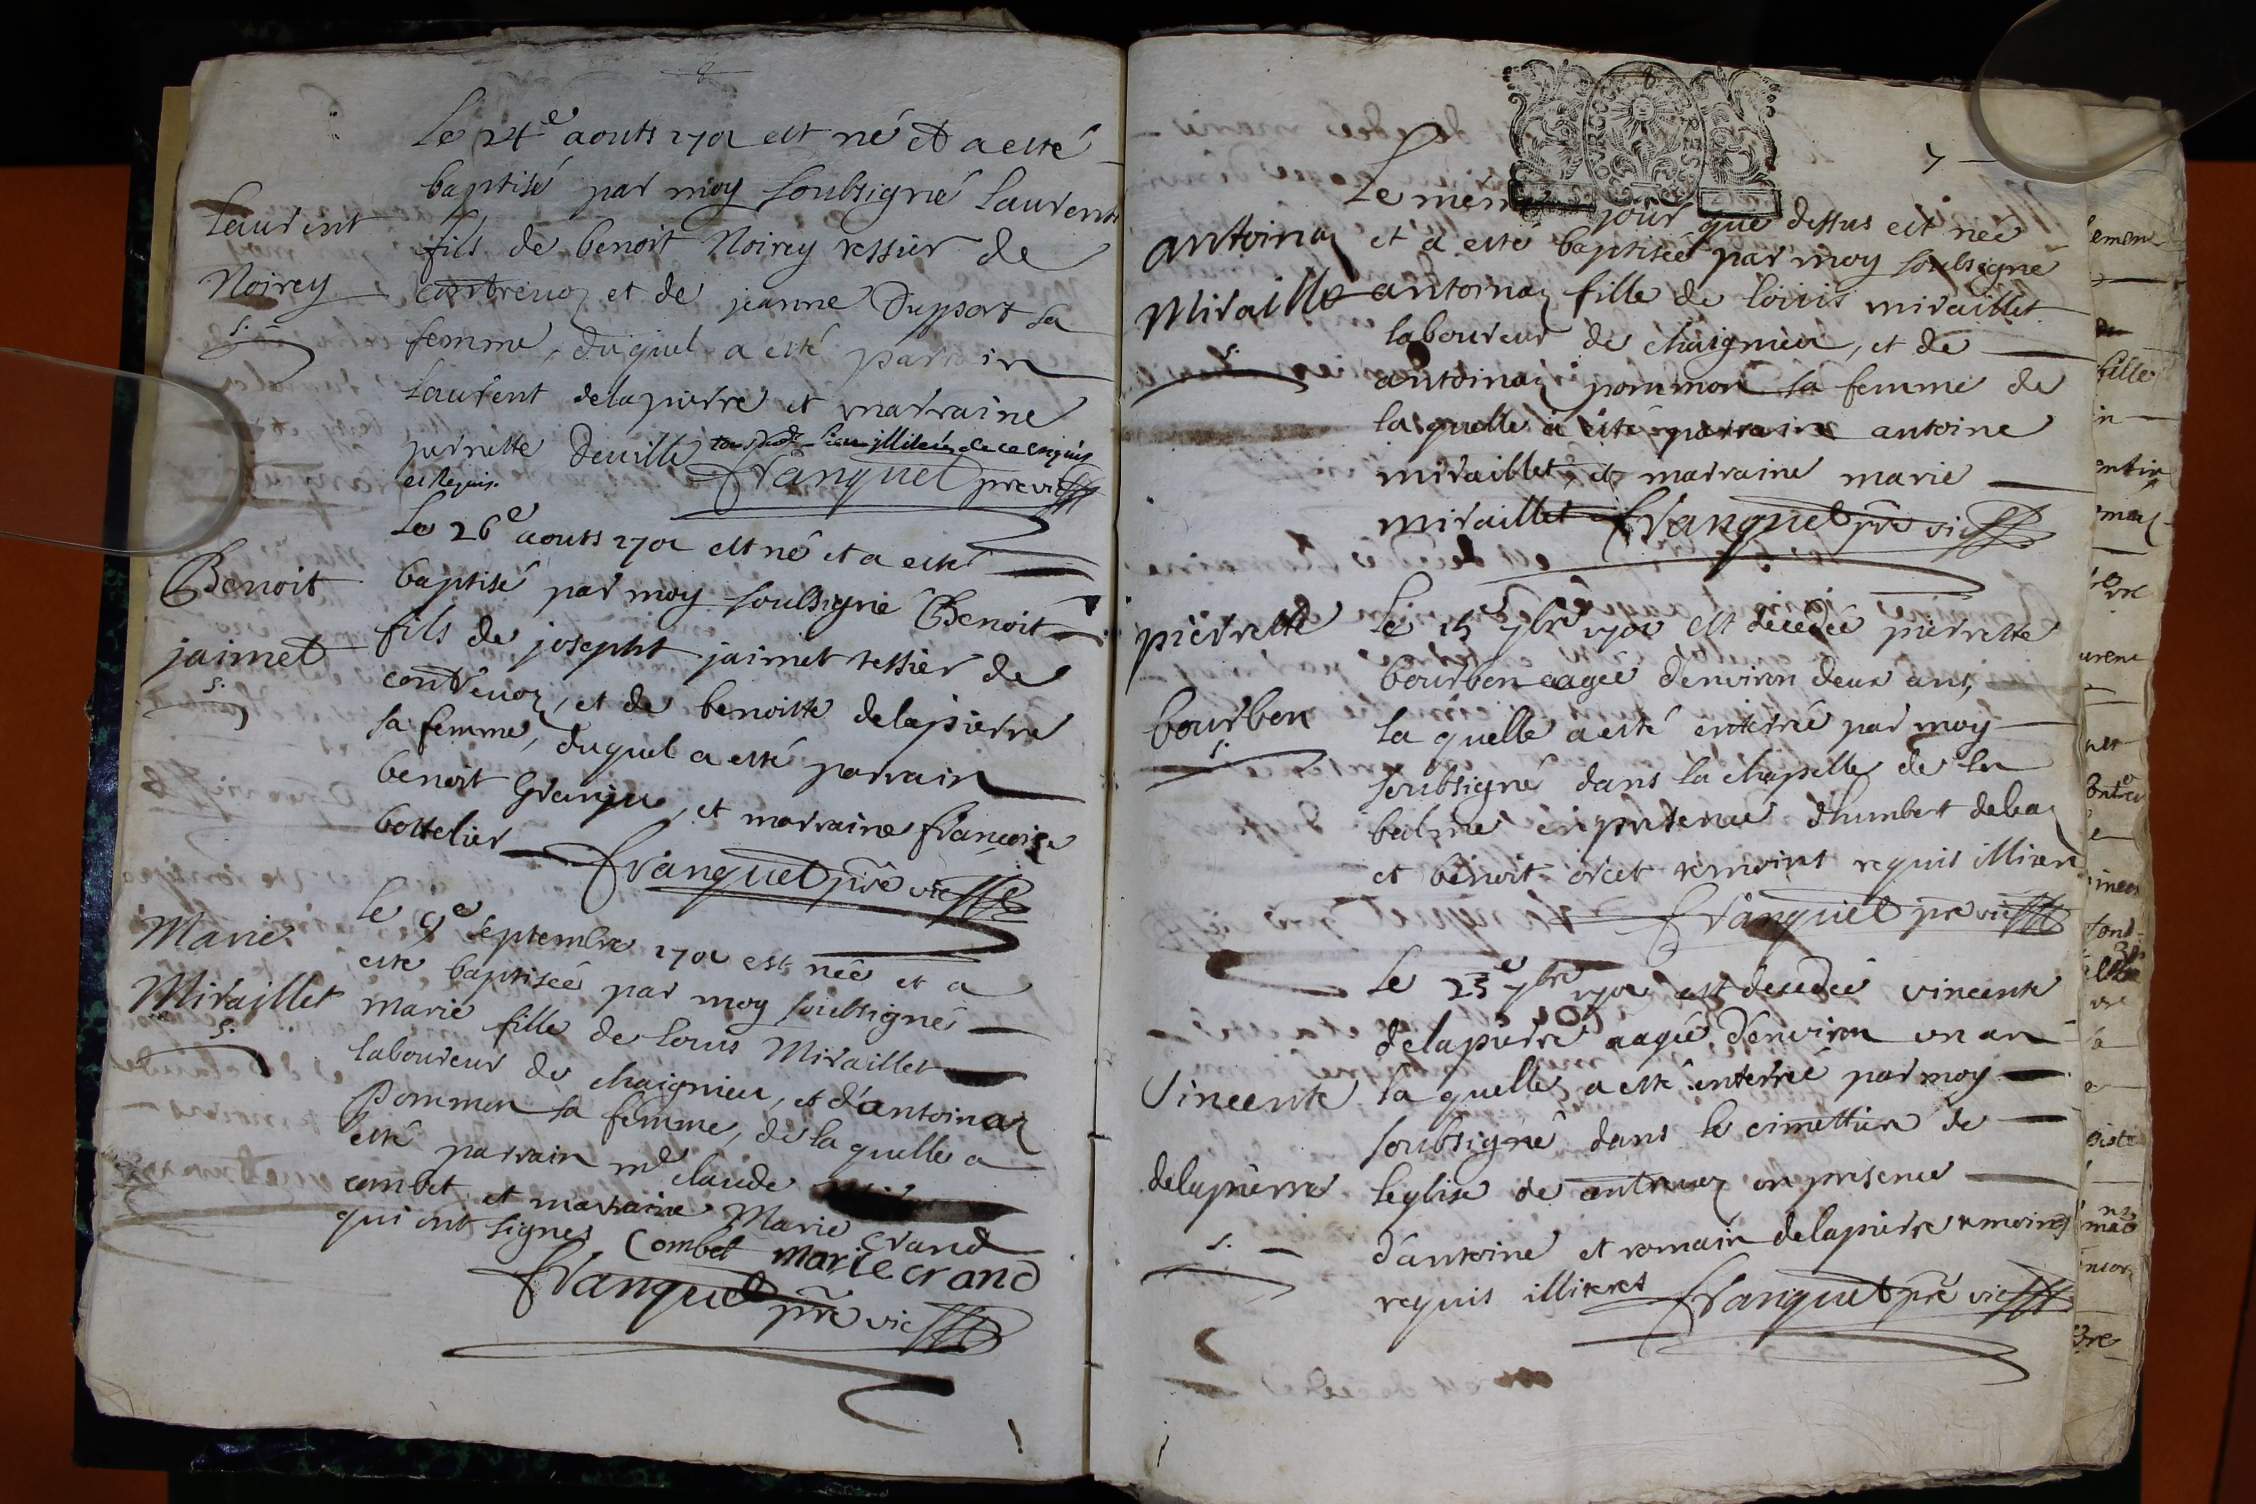 Le 24e aouts 1701 est né et a esté
baptisé par moy soubsigné Laurent
Laurent
fils de benoit Noirey tessier de
Noirey
contrevoz et de jeanne Dupport sa
S.
femme, duquel a esté parrain
Laurent delapierre et marraine
pernette Deville illiterés de ce enquis
et Requis. franquet pre vic
Le 26e aouts 1701 est né et a esté
Benoit
baptisé par moy soubsigné Benoit
jaimet
fils de josepht jaimet tessier de
S.
contrevoz, et de benoitte delapierre
sa femme, duquel a esté parrain
benoit Granju, et marraine francoise
bottelier franquet pre vic
Marie
Le 9e septembre 1701 est née et a
esté baptisée par moy soubsigné
Miraillet
marie fille de Louis Miraillet
S.
laboureur de chaignieu, et d'antoinaz
Pommon sa femme, de laquelle a
esté parrain me claude
combet et marraine Marie crand
qui ont signes Combet marie crand
franquet pre vic
7
Le meme jour que dessus est née
antoinaz
et a esté baptisée par moy soubsigné
Miraille
antoinaz fille de loiuis miraillet
S.
laboureur de chaignieu, et de
antoinaz pommon sa femme de
laquelle a esté parrain antoine
miraillet et marraine marie
miraillet franquet pre vic
pierrette
Le 15e 7bre 1701 est décedée pierrette
bourbon
bourbon aagée d'environ deux ans,
S.
la quelle a esté enterrée par moy
soubsigné dans la chapelle de la
balme en presence d'humbert
et benoit orcet temoins requis illiter
franquet pre vic
Le 23e 7bre 1701 est decedée vincente
delapierre aagée d'environ un an
Vincente
la quelle a esté enterrée par moy
soubsigné dans le cimettiere de
delapierre
leglise de contrevoz en presence
S.
d'antoine et romain delapierre temoins
requis illiteres franquet pre vic